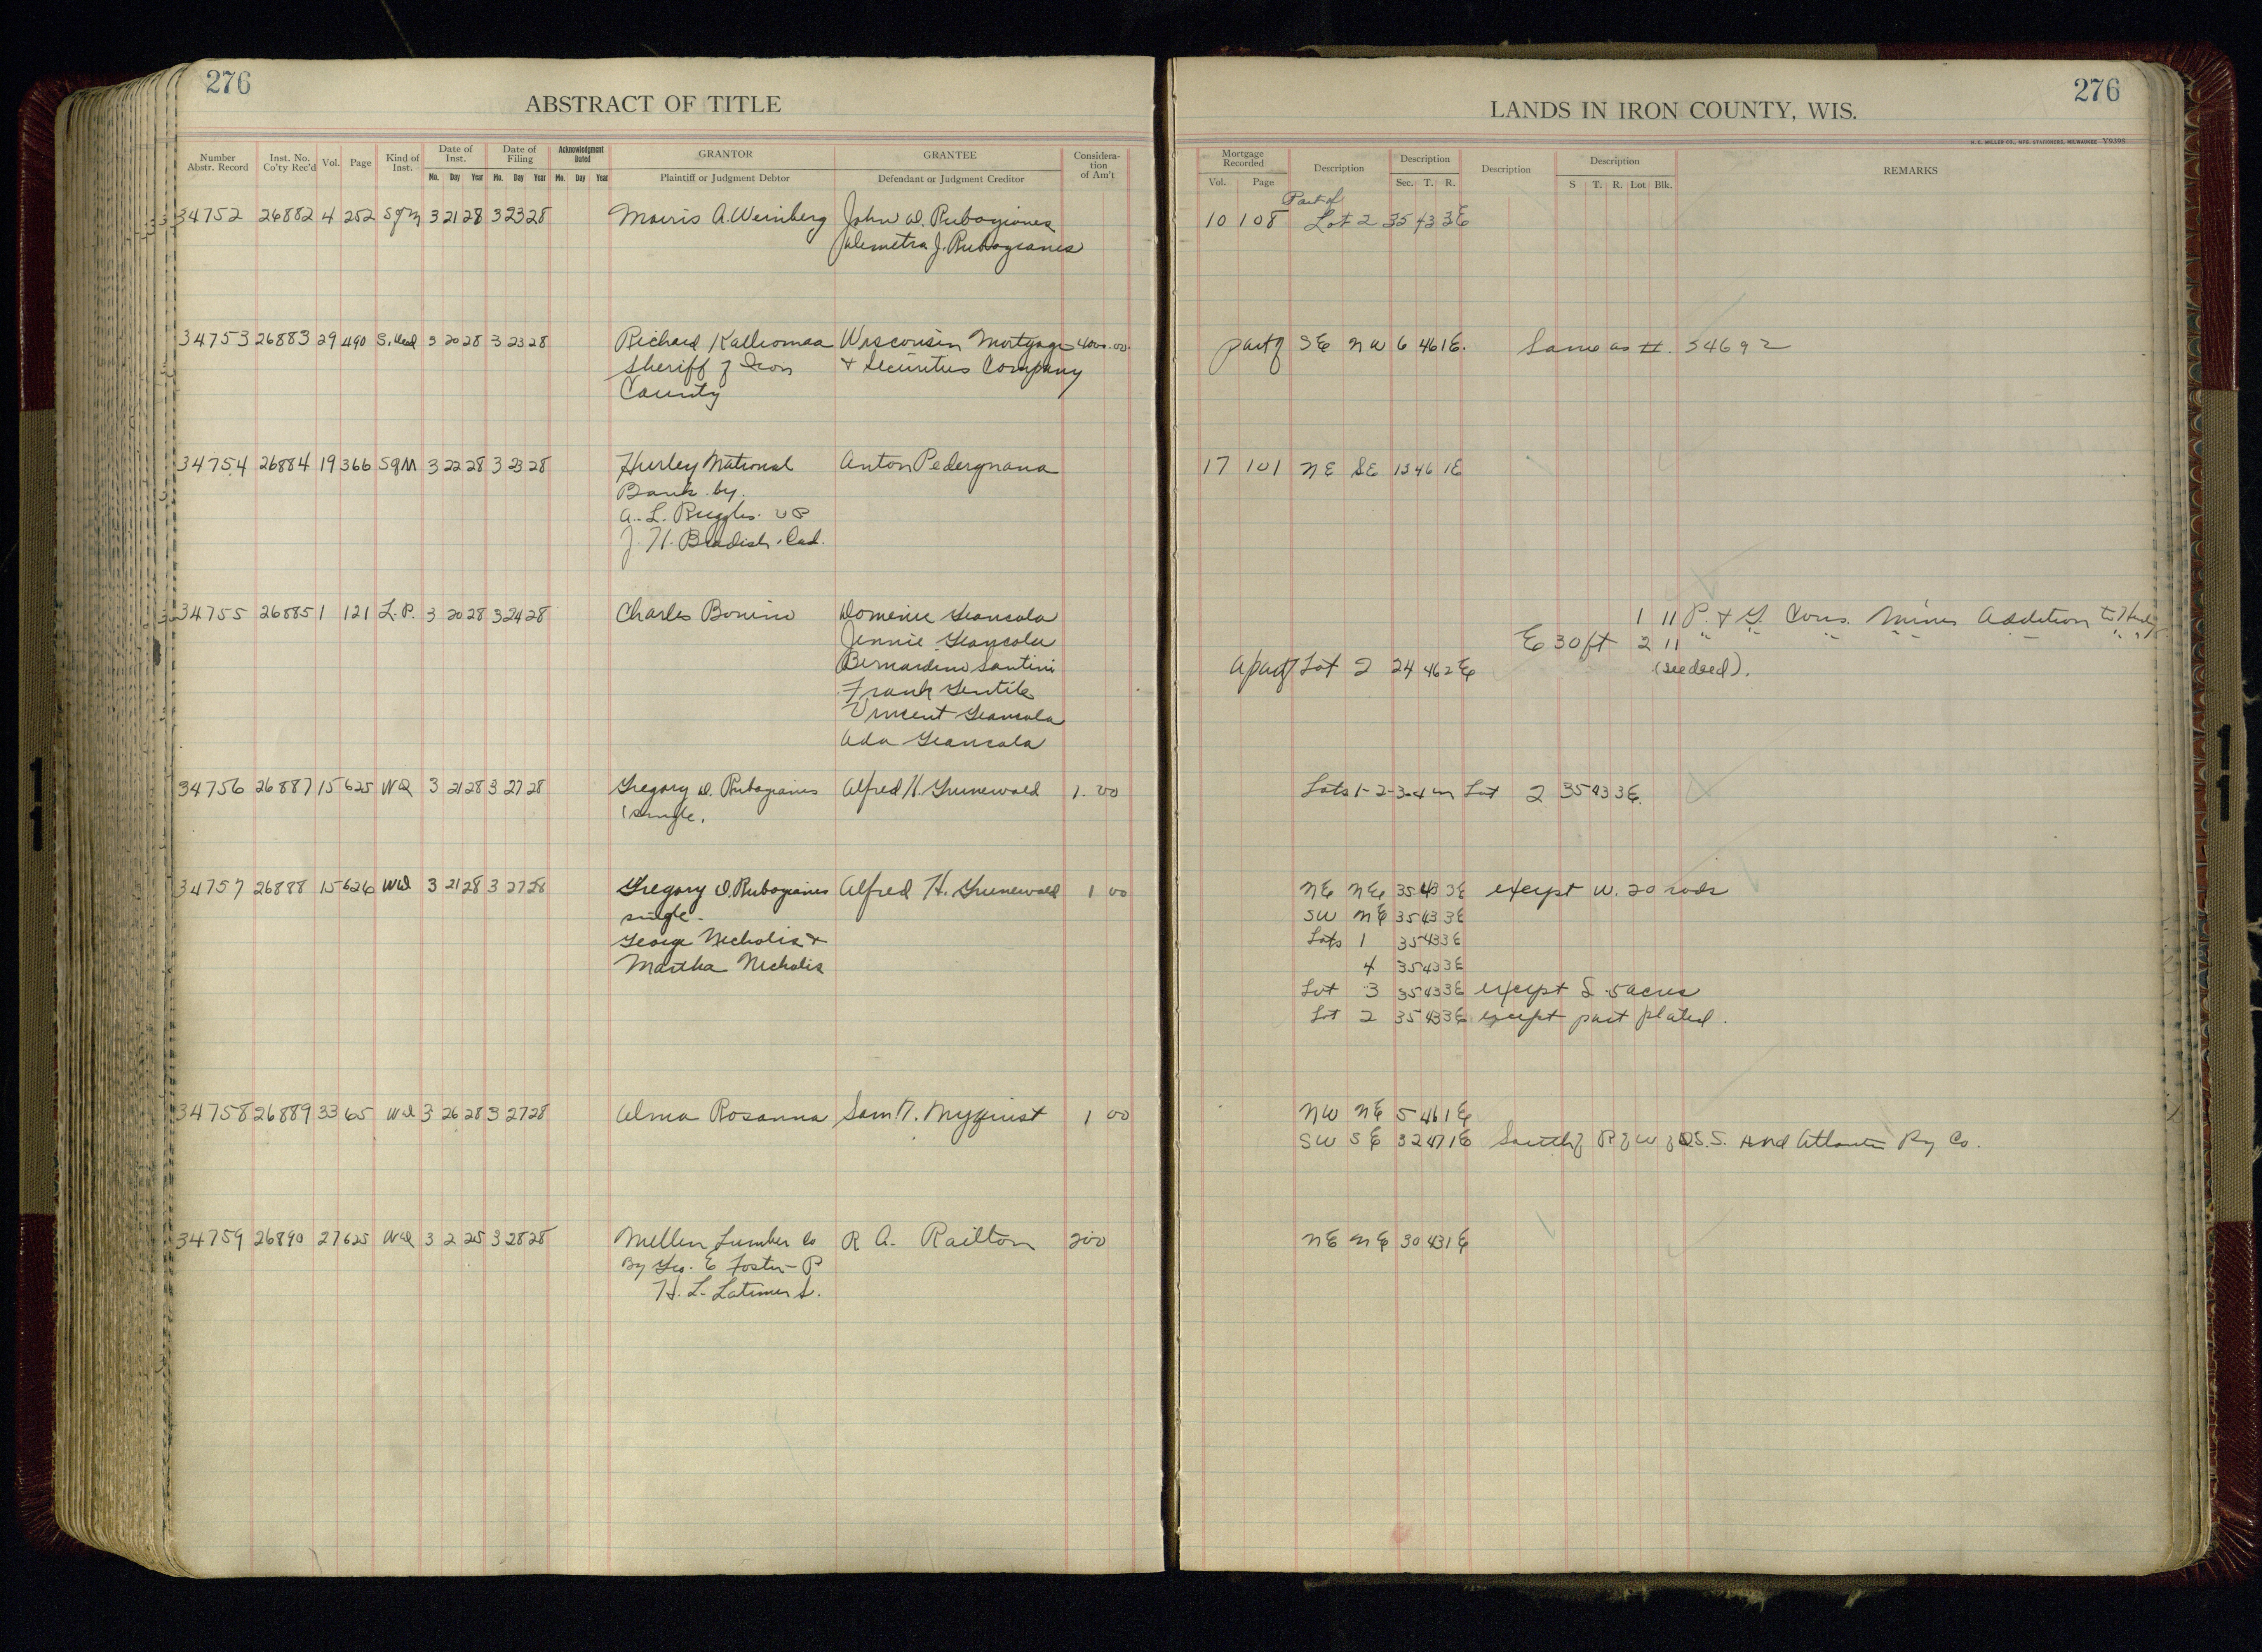 276
ABSTRACT OF TITLE
Number Abstr. Record
Inst. No. Co'ty Rec'd
Vol.
Page
Kind of Inst.
Date of Inst.
Mo. Day Year
Date of Filing
Mo. Day Year
Acknowledgment Dated
Mo. Day Year
GRANTOR
Plaintiff or Judgment Debtor
GRANTEE
Defendant or Judgment Creditor
Considera-
tion
of Am't
34752 26882 4 252 Sgm 3 21 28 3 23 28 Morris A. Weinberg John D. Rubogianes
J. Rubogianes
34753 26883 29 490 S. Deed 3 20 28 3 23 28 Richard Kalliomaa Wisconsin Mortgage 4000.00
Sheriff of Iron & Securities Company
County
34754 26884 19 366 SgM 3 22 28 3 23 28 Hurley National Anton Pedergnana
Bank by.
A. L. Ruggles. VP
J. H. Bradish, Cas.
34755 26885 1 121 L.P. 3 20 28 3 24 28 Charles Bonino Domenic Giancola
Jennie Giancola
Bernardino Santini
Frank Gentile
Vincent Giancola
Ada Giancola
34756 26887 15 625 WD 3 21 28 3 27 28 Gregory D. Rubogianes Alfred H. Grunewald 1.00
single.
34757 26888 15 626 WD 3 21 28 3 27 28 Gregory D. Rubogianes Alfred H. Grunewald 1 00
single.
George Nicholis &
Martha Nicholis
34758 26889 33 65 Wd 3 26 28 3 27 28 Alma Rosanna Sam N. Nyquist 1 00
34759 26890 27 625 WD 3 2 25 3 28 28 Mellen Lumber Co R A. Railton 200
By Geo. E Foster - P
H. L. Latimer S.
276
LANDS IN IRON COUNTY, WIS.
H. C. MILLER CO., MFG. STATIONERS, MILWAUKEE
Mortgage Recorded
Vol. Page
Description
Description
Sec. T. R.
Description
Description
S T. R. Lot Blk.
REMARKS
Part of
10 108 Lot 2 35 43 3E
part of SE NW 6 46 1E. Same as #. 34692
17 101 NE SE 13 46 1E
1 11 P. & G. Cons. Mines Addition to
E 30 ft 2 11 " " " " " "
a part of Lot 2 24 46 2E (see deed).
Lots 1-2-3-4 in Lot 2 35 43 3E.
NE NE 35 43 3E except W. 20 rods
SW NE 35 43 3E
Lots 1 35 43 3E
4 35 43 3E
Lot 3 35 43 3E except S 5 acres
Lot 2 35 43 3E except part plated.
NW NE 5 46 1E
SW SE 32 47 1E South of R of W of D.S.S. and Atlantic Ry Co.
NE NE 30 43 1E